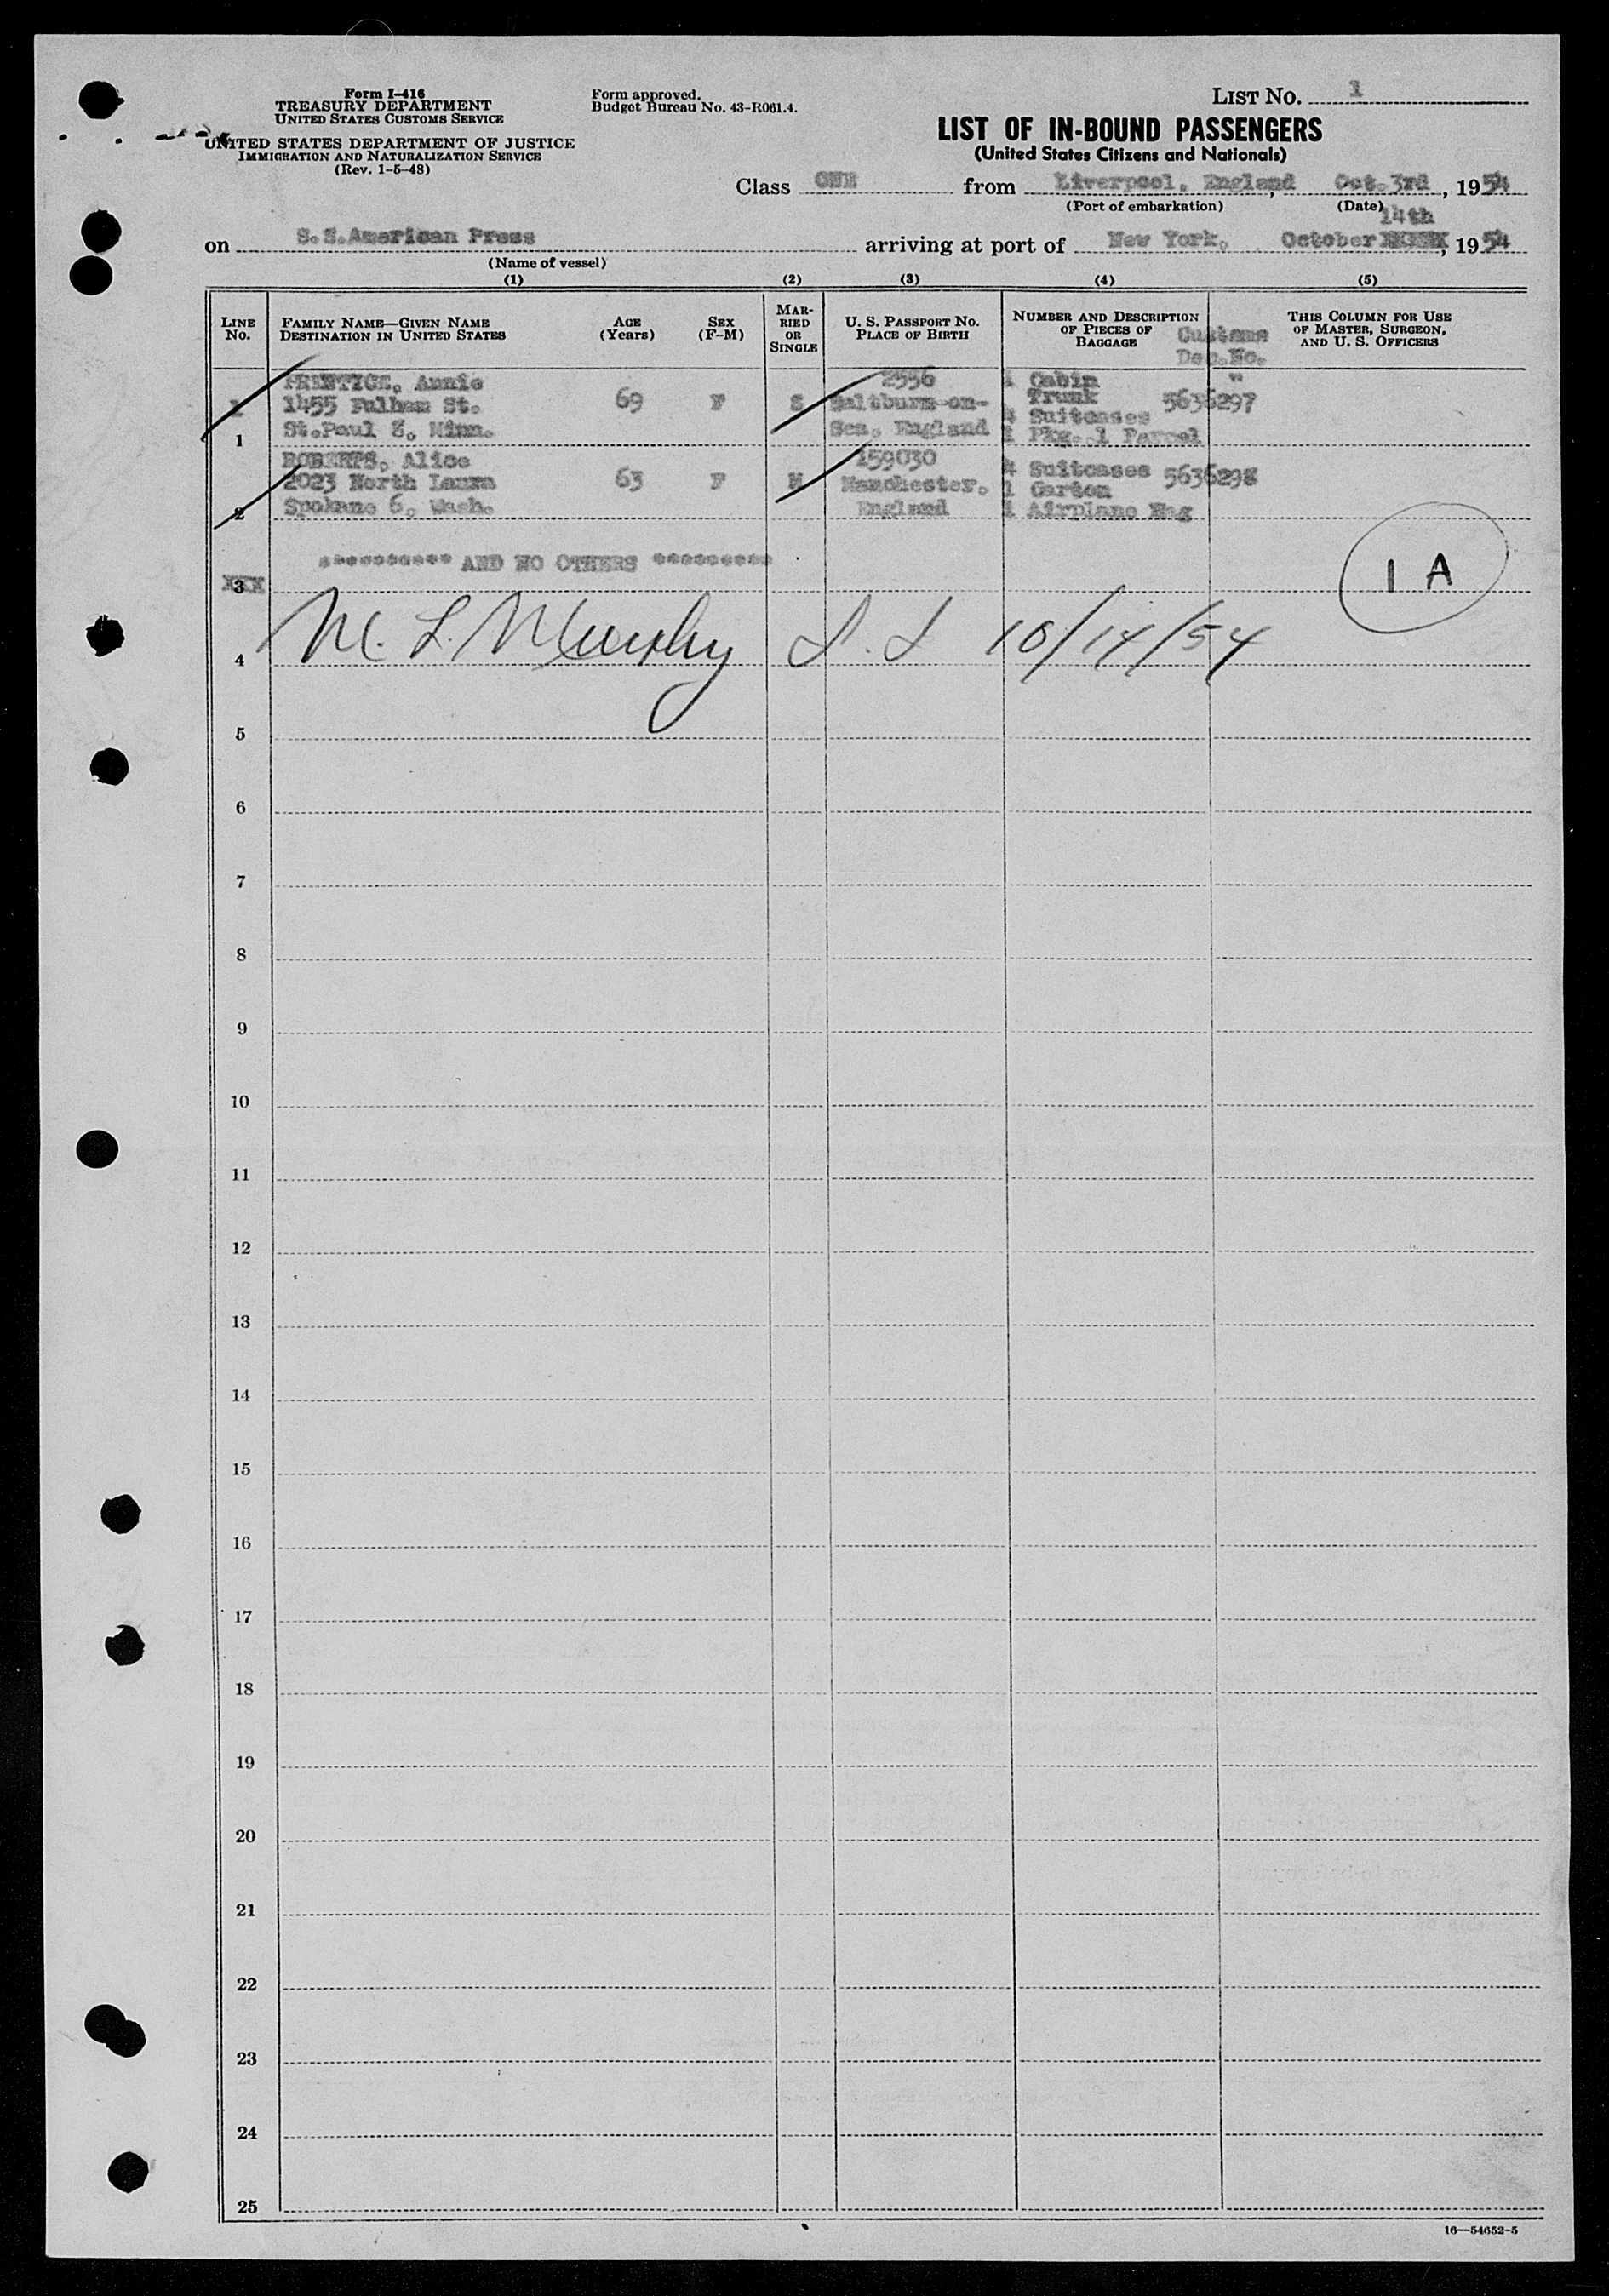 Form I-416
TREASURY DEPARTMENT
UNITED STATES CUSTOMS SERVICE
UNITED STATES DEPARTMENT OF JUSTICE
IMMIGRATION AND NATURALIZATION SERVICE
(Rev. 1-5-48)
Form approved.
Budget Bureau No. 43-R061.4.
LIST No. 1
LIST OF IN-BOUND PASSENGERS
(United States Citizens and Nationals)
Class ONE from Liverpool, England, Oct. 3rd, 1954
(Port of embarkation) (Date)
14th
on S.S.American Press arriving at port of New York, October, 1954
(Name of vessel)
(1) (2) (3) (4) (5)
LINE No. FAMILY NAME—GIVEN NAME DESTINATION IN UNITED STATES AGE (Years) SEX (F-M) MARRIED OR SINGLE U. S. PASSPORT No. PLACE OF BIRTH NUMBER AND DESCRIPTION OF PIECES OF BAGGAGE Customs Dec.No. THIS COLUMN FOR USE OF MASTER, SURGEON, AND U. S. OFFICERS
PRENTICE, Annie 2556 1 Cabin "
1 1455 Fulham St. 69 F S Saltburn-on- Trunk 5636297
4 Suitcases
1 St.Paul 8, Minn. Sea, England 1 Pkg. 1 Parcel
ROBERTS, Alice 159030 4 Suitcases 5636298
2023 North Laura 63 F M Manchester, 1 Carton
2 Spokane 6, Wash. England 1 Airplane Bag
********** AND NO OTHERS *********
3
1 A
4 M. L. Murphy 10/14/54
5
6
7
8
9
10
11
12
13
14
15
16
17
18
19
20
21
22
23
24
25
16—54652-5